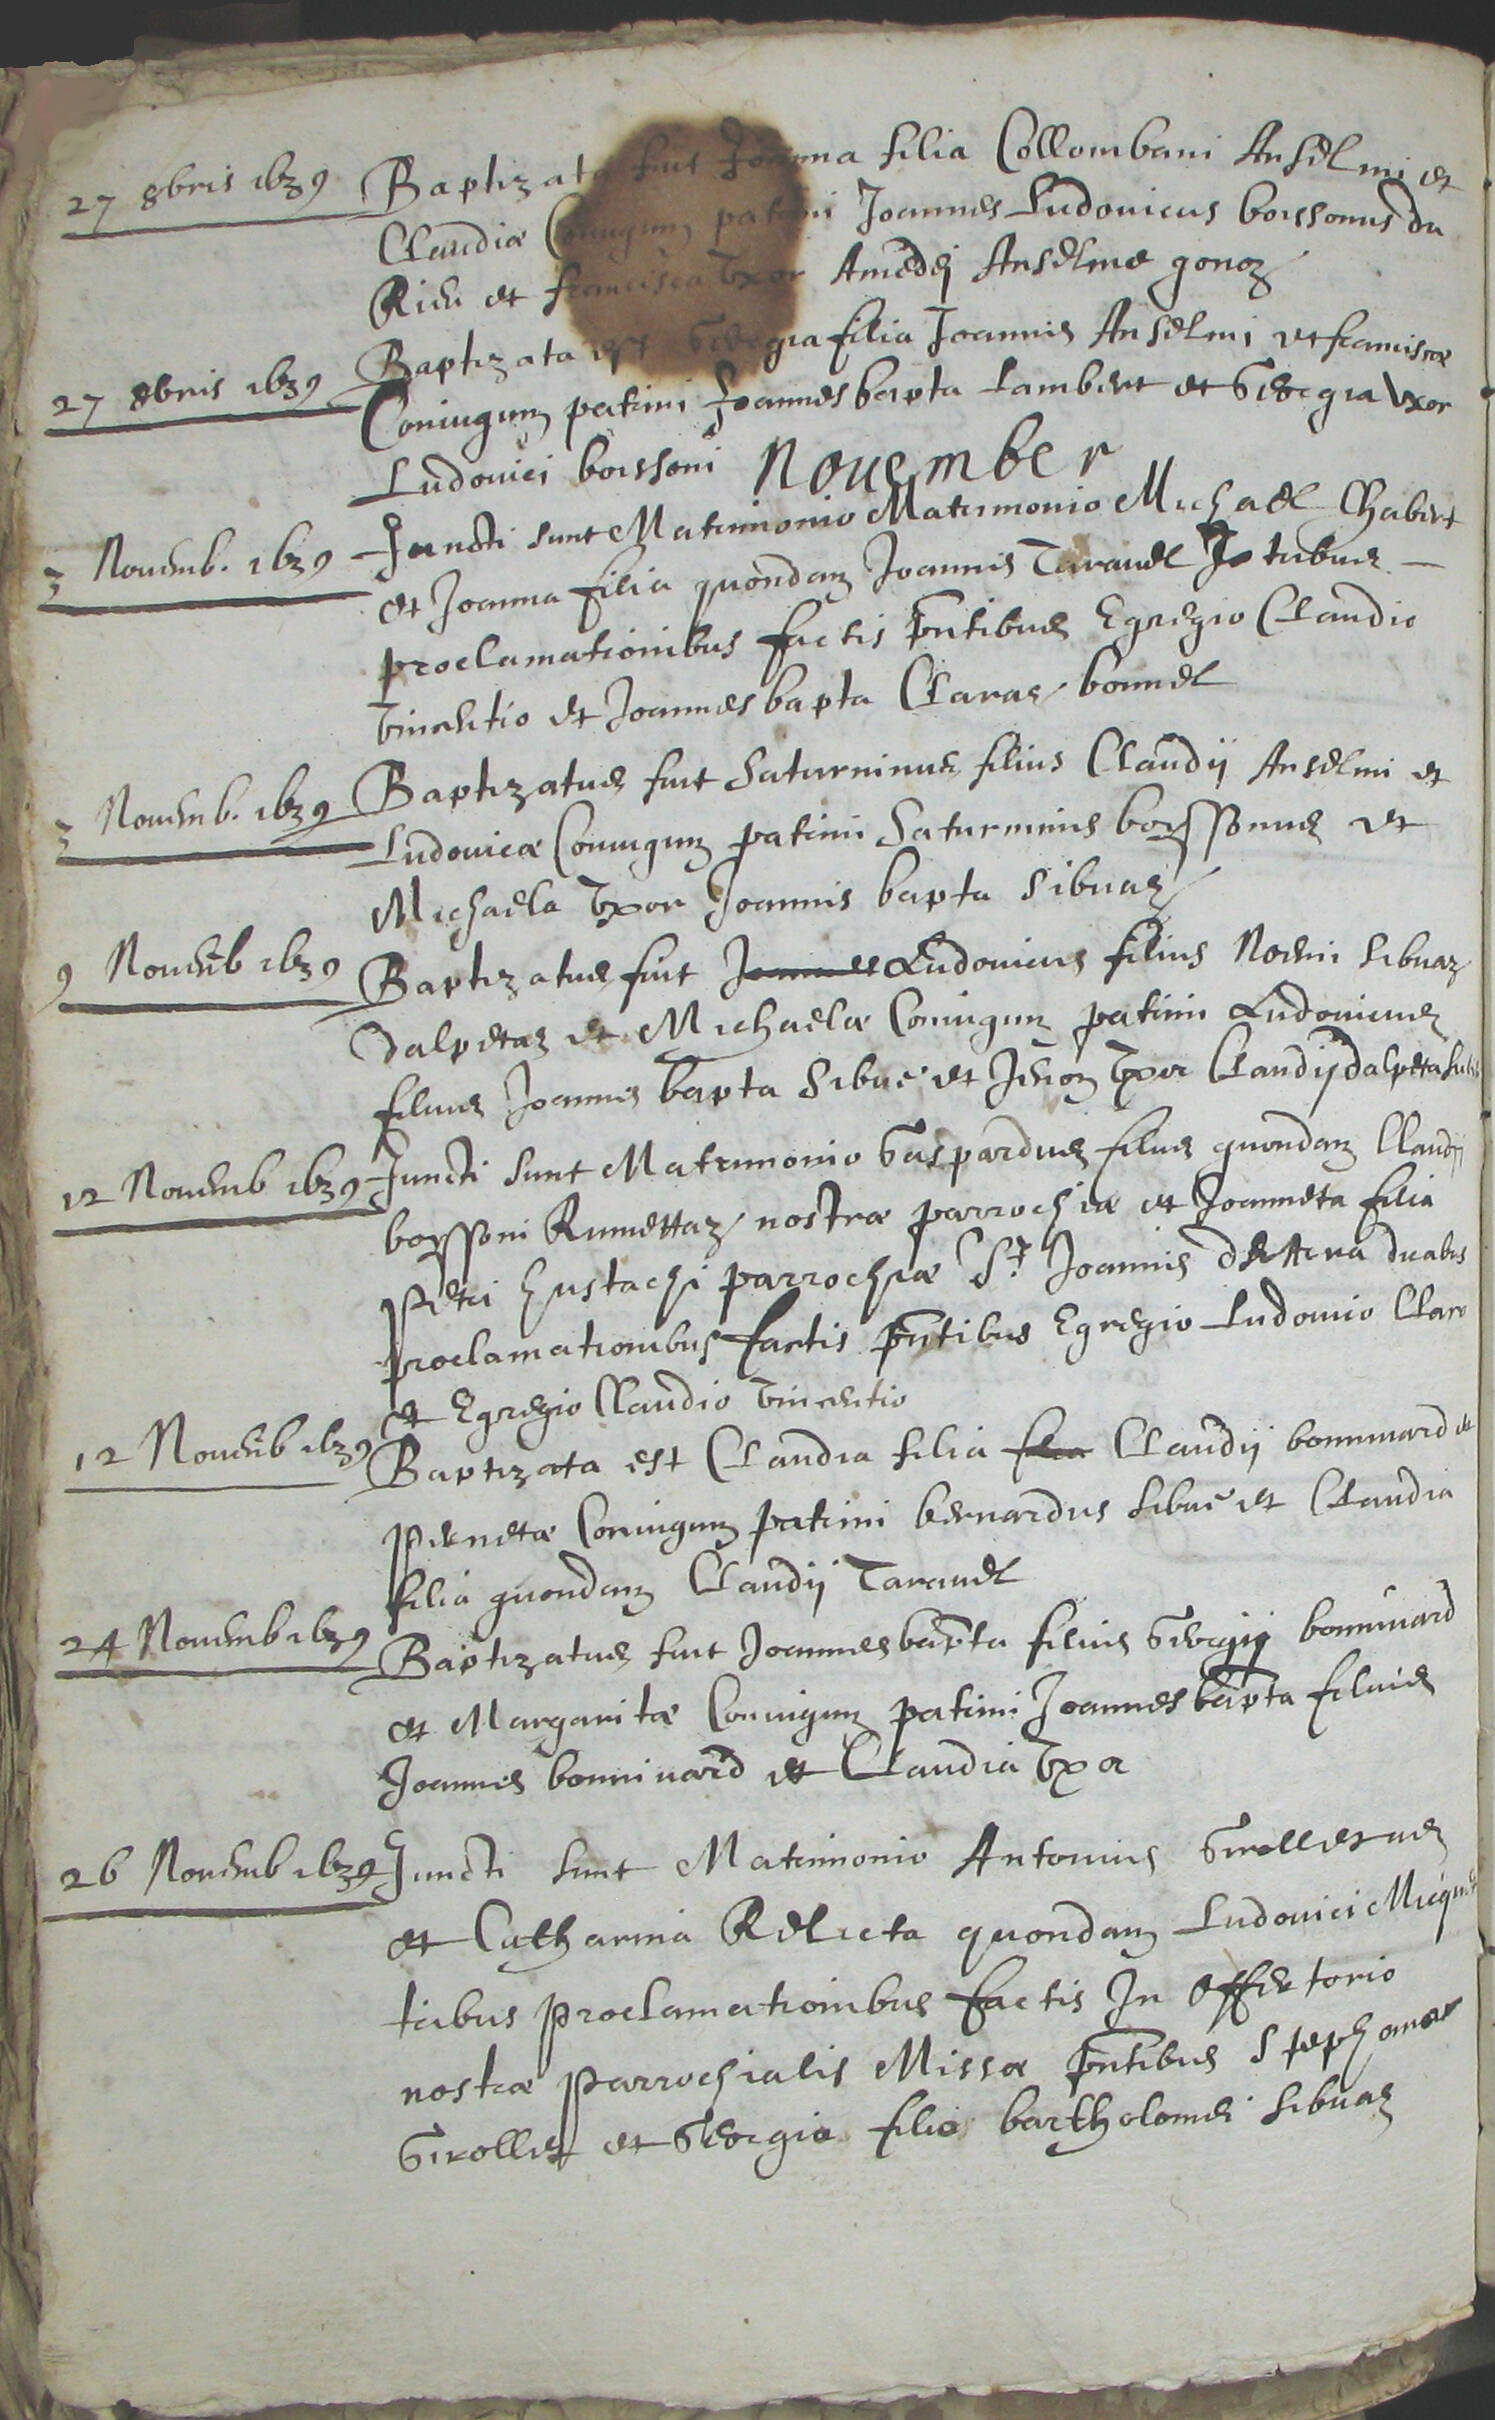 27 8bris 1639 Baptizata fuit Joanna filia Collombani Anselmi et
Claudiæ Coniugum patrini Joannes Ludovicus boissonus du
Rieu et francisca Vxor Amedej Anselme gonoz
27 8bris 1639 Baptizata est Georgia filia Joannis Anselmi et franciscæ
Coniugum patrini Joannes bapta Lambert et Georgia Vxor
Ludouici boissoni November
3 Nouemb. 1639 Juncti sunt Matrimonio Matrimonio Michael Chabert
et Joanna filia quondam Joannis Tarauel tribus
proclamationibus factis pntibus Egregio Claudio
Vincentio et Joannes bapta Claraz bonnel
3 Nouemb. 1639 Baptizatus fuit Saturninus filius Claudij Anselmi et
Ludouicæ Coniugum patrini Saturninus boissonus et
Michaela Vxor Joannis bapta Sibuaz
9 Nouemb 1639 Baptizatus fuit Joannes Ludouicus filius Noemi Sibuaz
dalpetaz et Michaelæ Coniugum patrini Ludouicus
filius Joannis bapta Sibue et Vxor Claudij dalpetta
12 Nouemb 1639 Juncti sunt Matrimonio Gaspardus filius quondam Claudij
boissoni Rumettaz nostræ parrochiæ et Joanneta filia
Petri Eustachi parrochiæ Sti Joannis duabus
proclamationibus factis pntibus Egregio Ludouico Claro
et Egregio Claudio Vincentio
12 Nouemb 1639 Baptizata est Claudia filia filia Claudij bonniuard et
Pernetæ Coniugum patrini bernardus Sibue et Claudia
filia quondam Claudij Tarauel
24 Nouemb 1639 Baptizatus fuit Joannes bapta filius Georgij bonniuard
et Margaritæ Coniugum patrini Joannes bapta filius
Joannis bonniuard et Claudia Vxor
26 Nouemb 1639 Juncti sunt Matrimonio Antonius Girolletus
et Catharina Relicta quondam Ludouici
tribus proclamationibus factis In offertorio
nostræ Parrochialis Missæ pntibus Stephano
Girollet et Georgio filio bartholomei Sibuaz